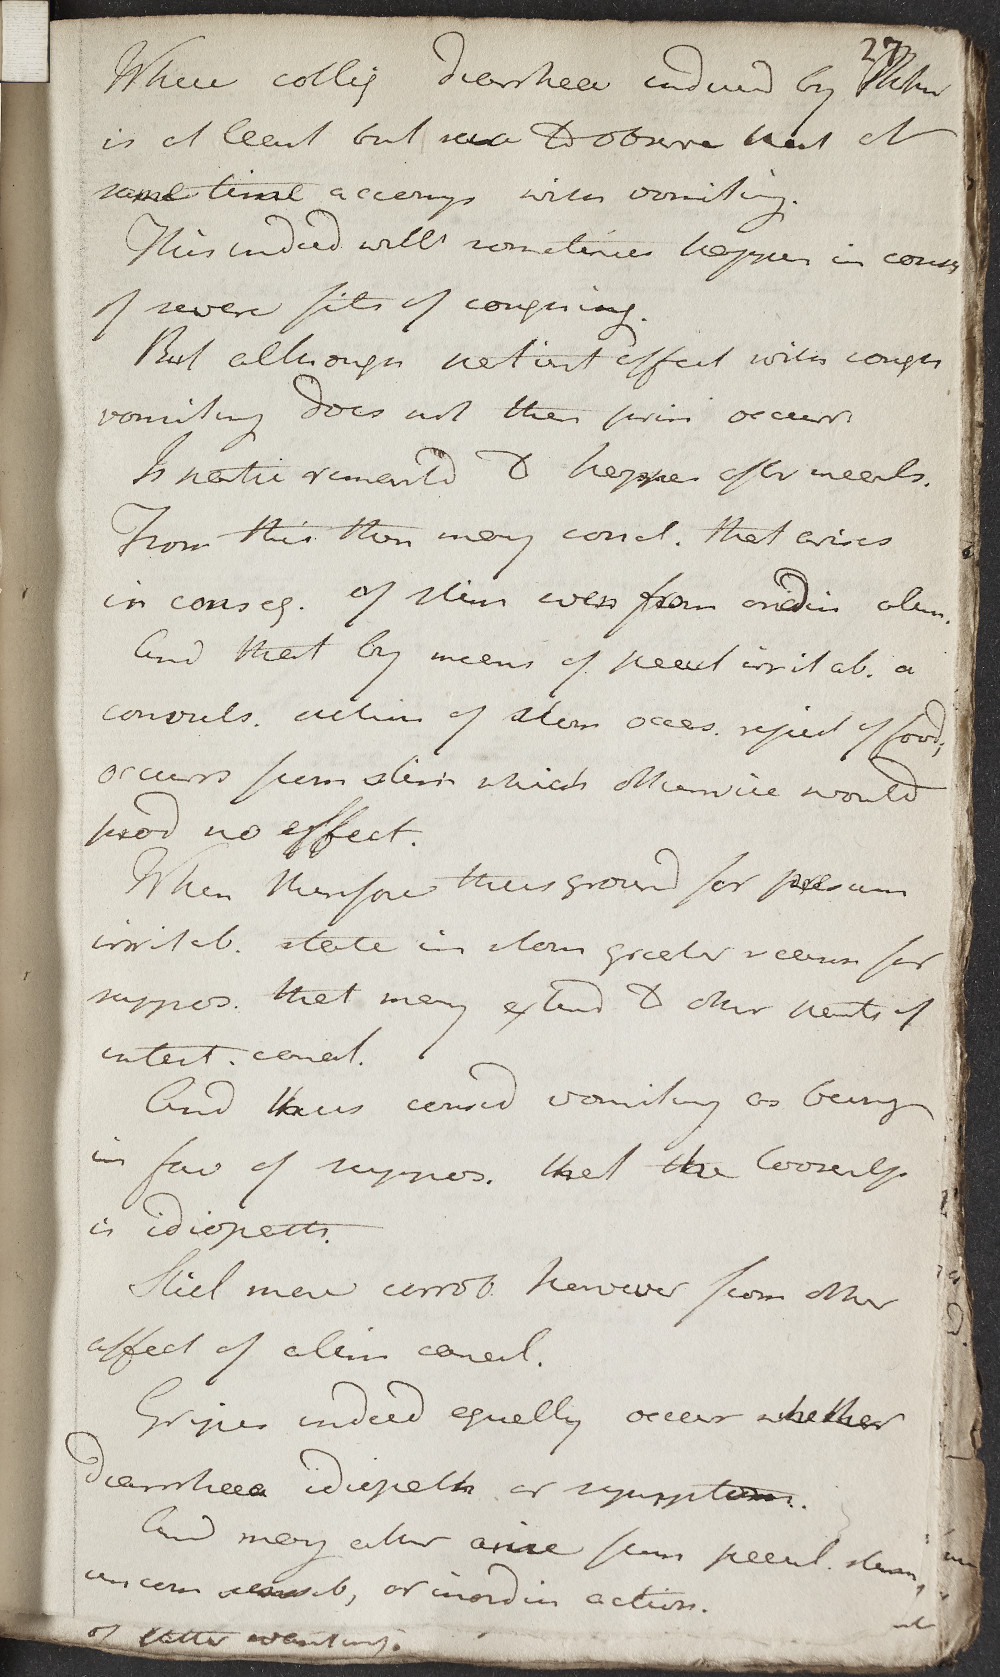 27
When colliq diarrhea induced by Phthis
is at least but rare to observe that at
same time accomp with vomiting.
This indeed will sometimes happen in conseq
of severe fits of coughing.
But although patient affect with cough
vomiting does not then occurr
Is neither remark'd to happen after meals.
From this then may concl. that arises
in conseq. of stim even from ordin alim.
And that by means of pecul irritab. a
convuls. action of stom occas. reject of food,
occurrs from stim which otherwise would
prod no effect.
When therefore thus ground for presum
irritab. state in stom greater reason for
suppos. that may extend to other parts of
intest. canal.
And thus consid vomiting as being
in fav of suppos. that the Loosenss
is idiopath.
Still more corrob. however from other
affect of alim canal.
Gripes indeed equally occur whether
diarrhea idiopath or symptom.
And may alter arise from pecul. stim,
uncom sensib, or inordin action.
of latter wanting.